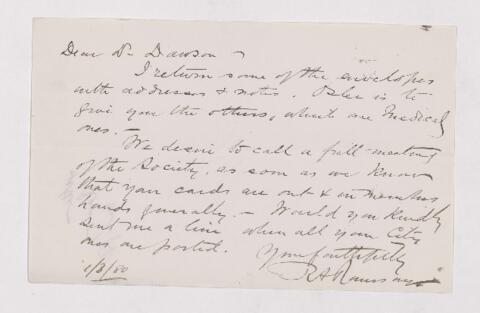 Dear Dr Dawson –
I return some of the envelopes
with addresses & notes. Osler is to
give you the others, which are Medical
ones. –
We desire to call a full meeting
of the Society, as soon as we know
that your cards are out & in members
hands generally. – Would you kindly
send me a line when all your City
ones are posted.
Yours faithfully
R A Ramsay
1/3/80